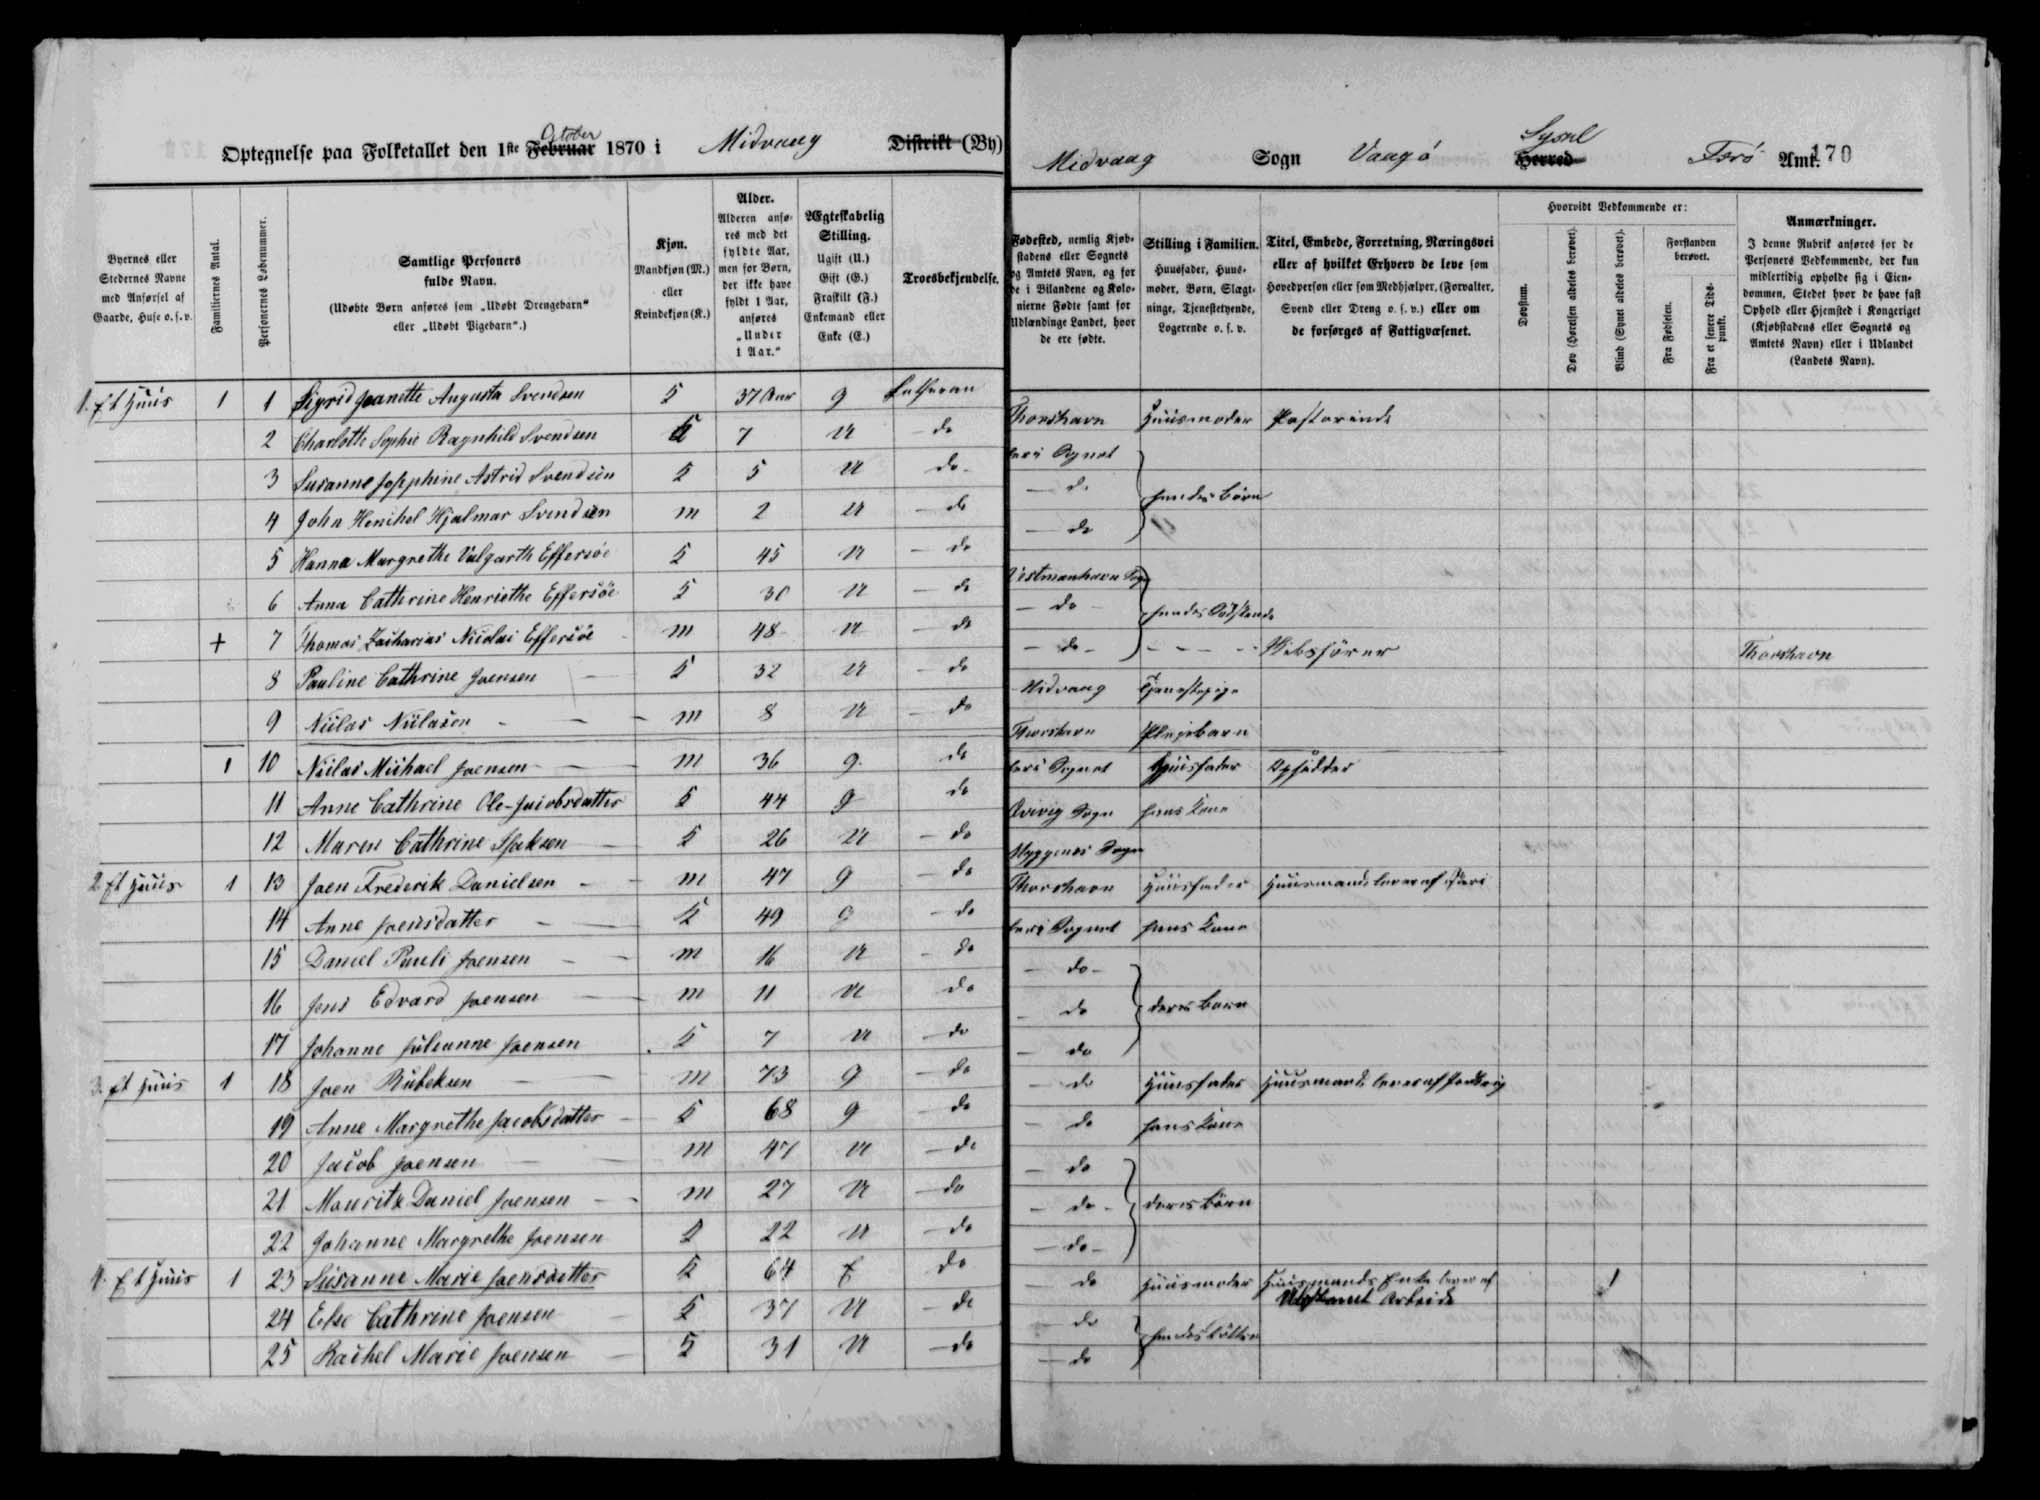 October
Optegnelse paa Folketallet den 1ste Februar 1870 i Midvaag Distrikt (By)
Byernes eller Stedernes Navne med Anførsel af Gaarde, Huse o. s. v.
Familiernes Antal.
Personernes Løbenummer.
Samtlige Personers fulde Navn.
(Udøbte Børn anføres som „Udøbt Drengebarn“ eller „Udøbt Pigebarn“.)
Kjøn.
Mandkjøn (M.) eller Kvindekjøn (K.)
Alder.
Alderen anføres med det fyldte Aar, men for Børn, der ikke have fyldt 1 Aar, anføres „Under 1 Aar.“
Ægteskabelig Stilling.
Ugift (U.) Gift (G.) Fraskilt (F.) Enkemand eller Enke (E.)
Troesbekjendelse.
1. Et Huus 1 1 Sigrid Jeanette Augusta Svendsen K 37 Aar g Lutheran
2 Charlotte Sophie Ragnhild Svendsen K 7 U do
3 Susanne Josephine Astrid Svendsen K 5 U do
4 John Henihel Hjalmar Svendsen m 2 U do
5 Hanna Margrethe Valgarth Effersöe K 45 U do
6 Anna Cathrine Henriethe Effersöe K 30 U do
+ 7 Thomas Zacharias Nicolai Effersöe m 48 U do
8 Pauline Cathrine Joensen K 32 U do
9 Niilas Niilasen m 8 U do
1 10 Niilas Michael Joensen m 36 g. do
11 Anne Cathrine Ole-Jacobsdatter K 44 g do
12 Maren Cathrine Isaksen K 26 U do
2 Et Huus 1 13 Joen Frederik Danielsen m 47 g do
14 Anne Joensdatter K 49 g do
15 Daniel Pauli Joensen m 16 U do
16 Jens Edvard Joensen m 11 U do
17 Johanne Julianne Joensen K 7 U do
3. Et Huus 1 18 Joen Rubeksen m 73 g do
19 Anne Margrethe Jacobsdatter K 68 g do
20 Jacob Joensen m 47 U do
21 Mouritz Daniel Joensen m 27 U do
22 Johanne Margrethe Joensen K 22 U do
4. Et Huus 1 23 Susanne Marie Joensdatter K 64 E do
24 Else Cathrine Joensen K 37 U do
25 Rachel Marie Joensen K 31 U do
Sysel
Midvaag Sogn Vaagö Herred Færö Amt. 170
Fødested, nemlig Kjøbstadens eller Sognets og Amtets Navn, og for de i Bilandene og Kolonierne Fødte samt for Udlændinge Landet, hvor de ere fødte.
Stilling i Familien.
Huusfader, Huusmoder, Børn, Slægtninge, Tjenestetyende, Logerende o. s. v.
Titel, Embede, Forretning, Næringsvei eller af hvilket Erhverv de leve som Hovedperson eller som Medhjælper, (Forvalter, Svend eller Dreng o. s. v.) eller om de forsørges af Fattigvæsenet.
Hvorvidt Vedkommende er:
Døvstum.
Døv (Hørelsen aldeles berøvet).
Blind (Synet aldeles berøvet).
Forstanden berøvet.
Fra Fødselen.
Fra et senere Tidspunkt.
Anmærkninger.
I denne Rubrik anføres for de Personers Vedkommende, der kun midlertidig opholde sig i Eiendommen, Stedet hvor de have fast Ophold eller Hjemsted i Kongeriget (Kjøbstadens eller Sognets og Amtets Navn) eller i Udlandet (Landets Navn).
Thorshavn Huusmoder Pastorinde
her i Sognet
do hendes Börn
do
Vestmanhavn Sogn
do hendes Södskende
do Skibsförer Thorshavn
Midvaag Tjenestepige
Thorshavn Pleiebarn
her i Sognet Huusfader Opsidder
Qvivig Sogn hans Kone
Myggenæs Sogn
Thorshavn Huusfader Huusmand lever af Fiskeri
her i Sognet hans Kone
do
do deres Børn
do
do Huusfader Huusmand lever af Jordbrug
do hans Kone
do
do deres Börn
do
do Huusmoder Huusmands Enke lever af 1
Uldvaret Arbeide
do hendes Döttre
do